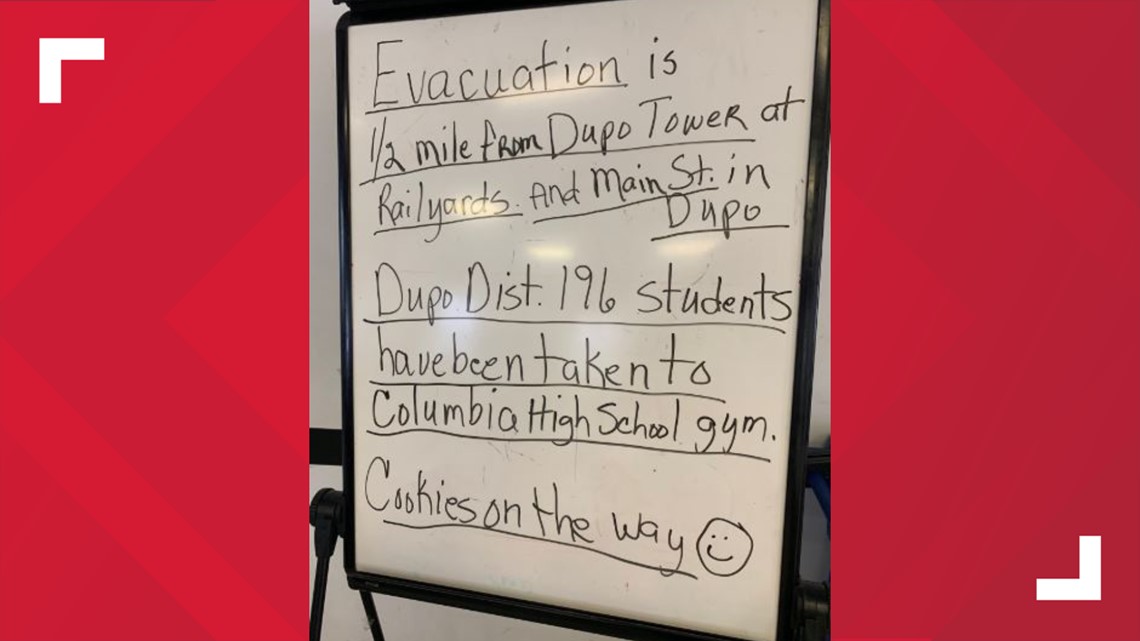 Evacuation is
1/2 mile from Dupo Tower at
Railyards. And Main St. in
Dupo
Dupo Dist. 196 students
have been taken to
Columbia High School gym.
Cookies on the way